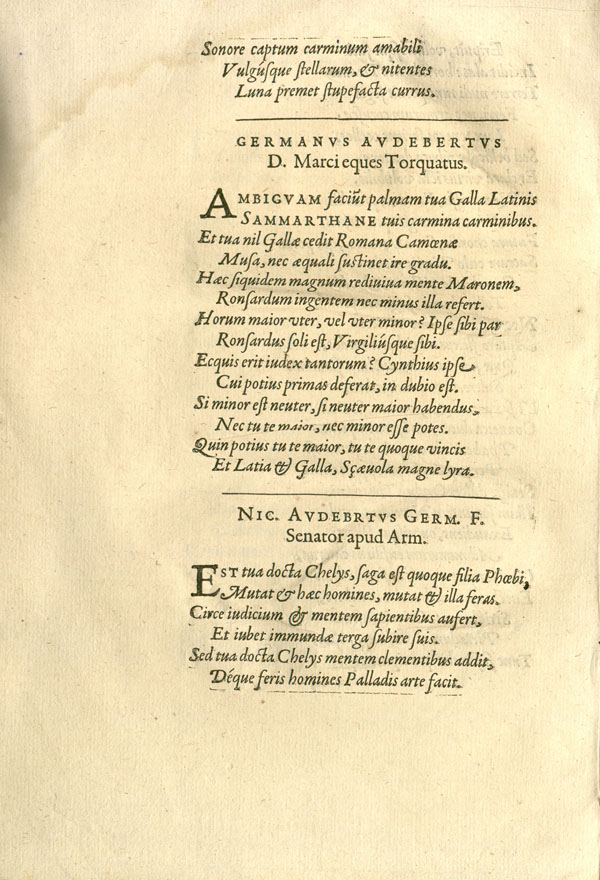 Sonore captum carminum amabili
Vulgúsque stellarum, & nitentes
Luna premet stupefacta currus.
GERMANVS AVDEBERTVS
D. Marci eques Torquatus.
AMBIGVAM faciūt palmam tua Galla Latinis
SAMMARTHANE tuis carmina carminibus.
Et tua nil Gallæ cedit Romana Camœnæ
Musa, nec æquali sustinet ire gradu.
Hæc siquidem magnum rediuiua mente Maronem,
Ronsardum ingentem nec minus illa refert.
Horum maior vter, vel vter minor? Ipse sibi par
Ronsardus soli est, Virgiliúsque sibi.
Ecquis erit iudex tantorum? Cynthius ipse
Cui potius primas deferat, in dubio est.
Si minor est neuter, si neuter maior habendus,
Nec tu te maior, nec minor esse potes.
Quin potius tu te maior, tu te quoque vincis
Et Latia & Galla, Sçæuola magne lyra.
NIC. AVDEBRTVS GERM. F.
Senator apud Arm.
EST tua docta Chelys, saga est quoque filia Phœbi,
Mutat & hæc homines, mutat & illa feras.
Circe iudicium & mentem sapientibus aufert,
Et iubet immundæ terga subire suis.
Sed tua docta Chelys mentem clementibus addit,
Déque feris homines Palladis arte facit.